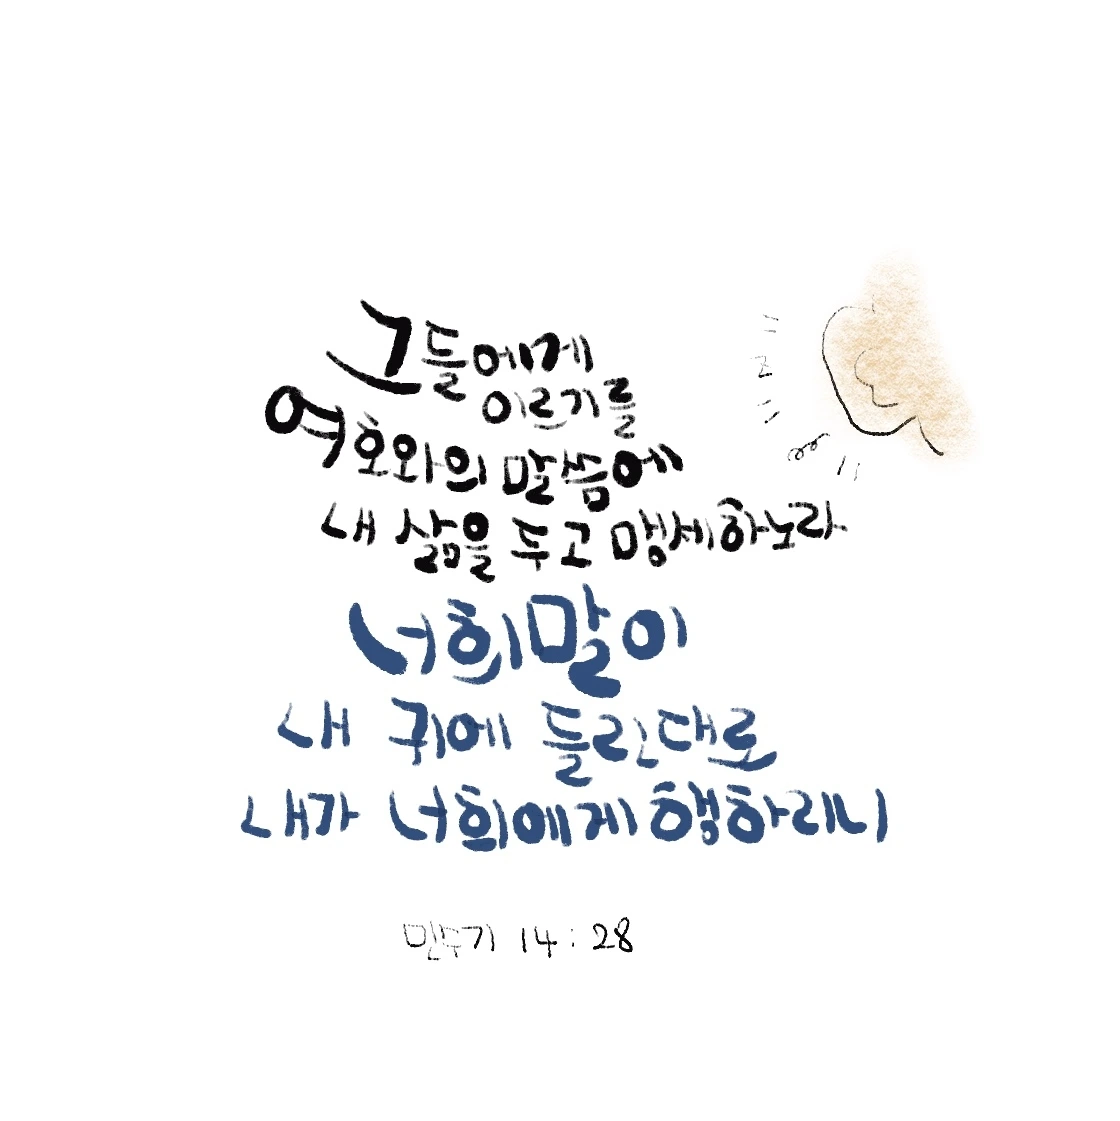 그들에게
이르기를
여호와의 말씀에
내 삶을 두고 맹세하노라
너희 말이
내 귀에 들린대로
내가 너희에게 행하리니
민수기 14:28